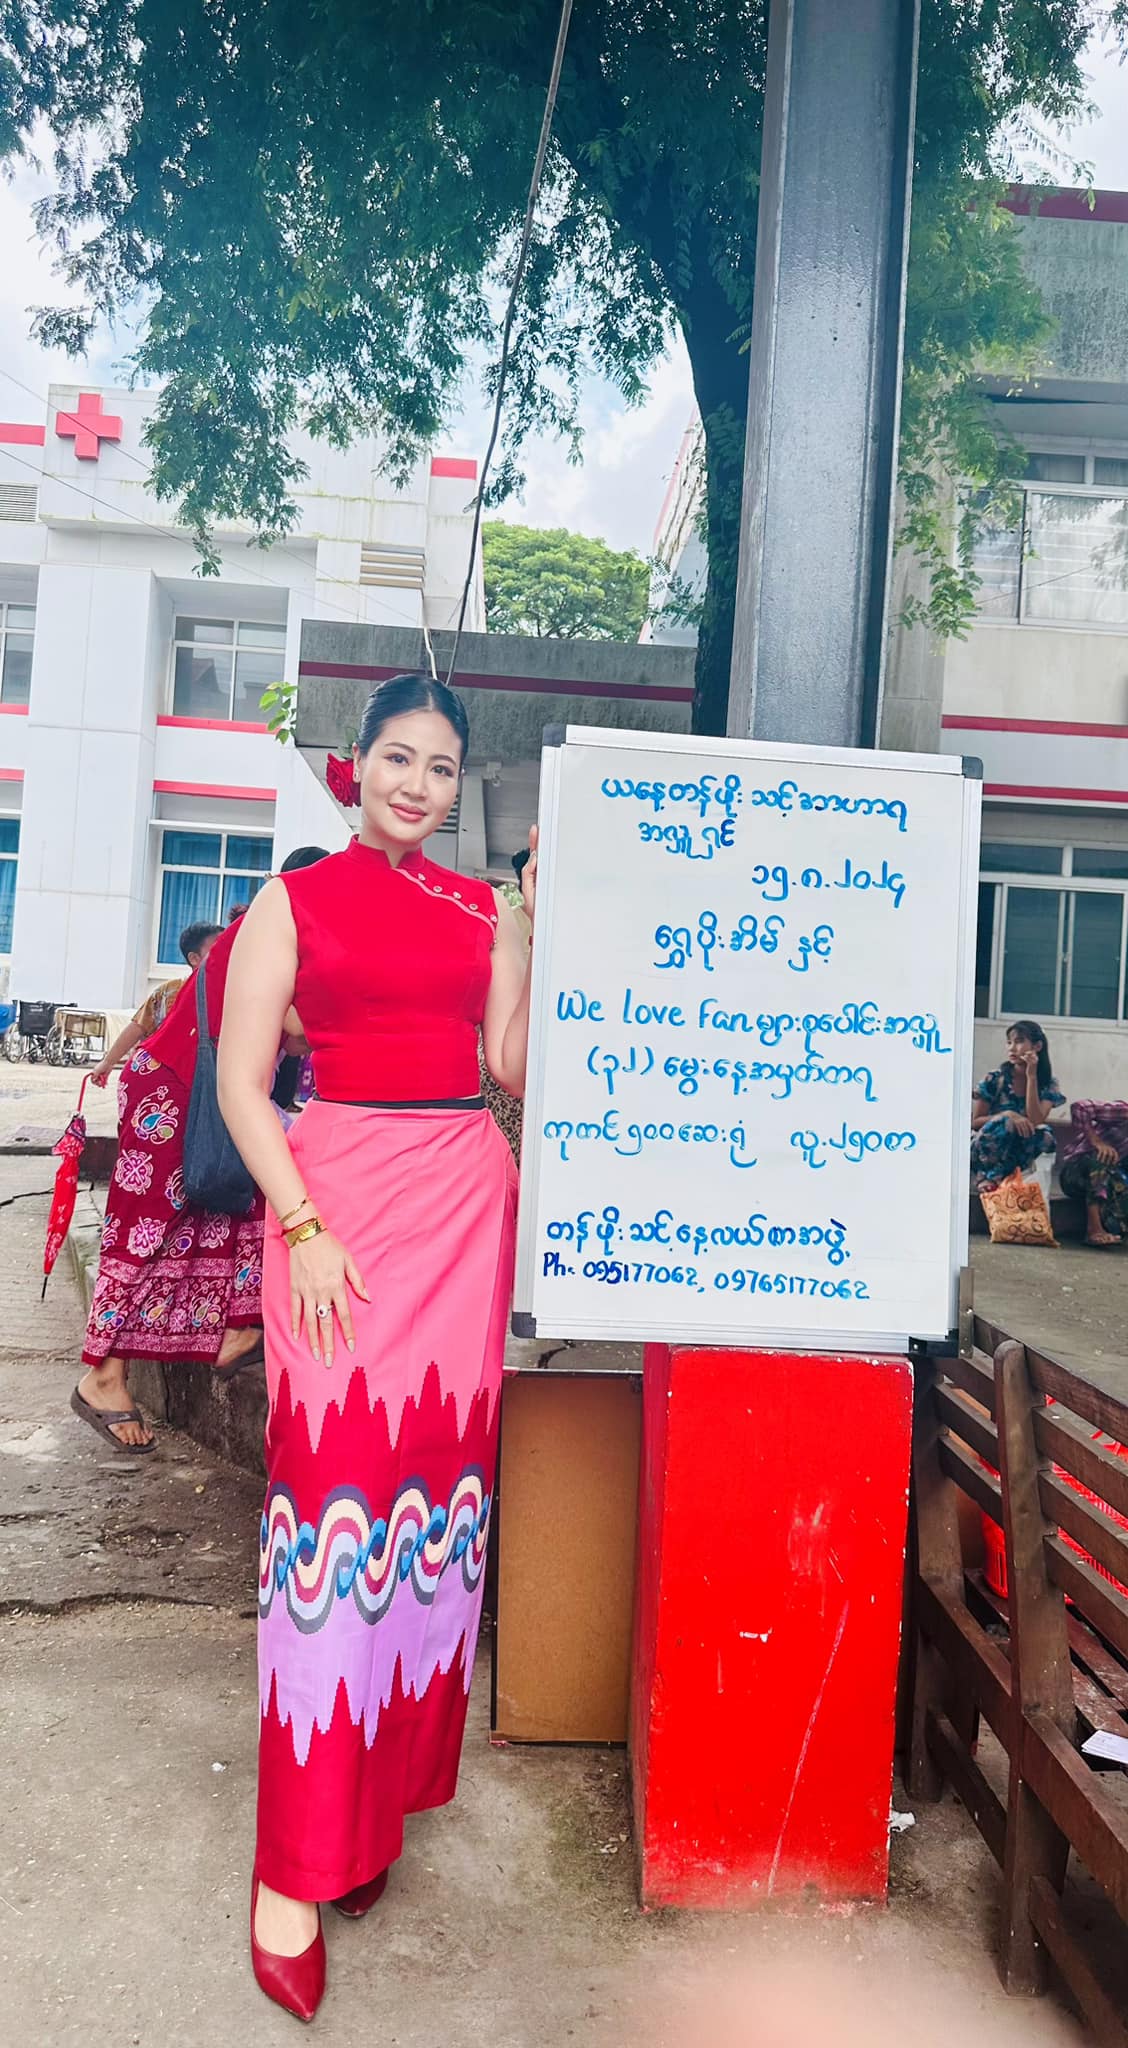 ယနေ့တန်ဖိုးသင့်အာဟာရ
အလှူရှင်
၁၅.၈.၂၀၂၄
ရွှေပိုးအိမ် နှင့်
We love Fan များစုပေါင်းအလှူ
(၃၂) မွေးနေ့အမှတ်တရ
ကုတင် ၅၀၀ဆေးရုံ လူ.၂၅၀စာ
တန်ဖိုးသင့်နေ့လယ်စာအဖွဲ့
Ph: 095177062, 09765177062